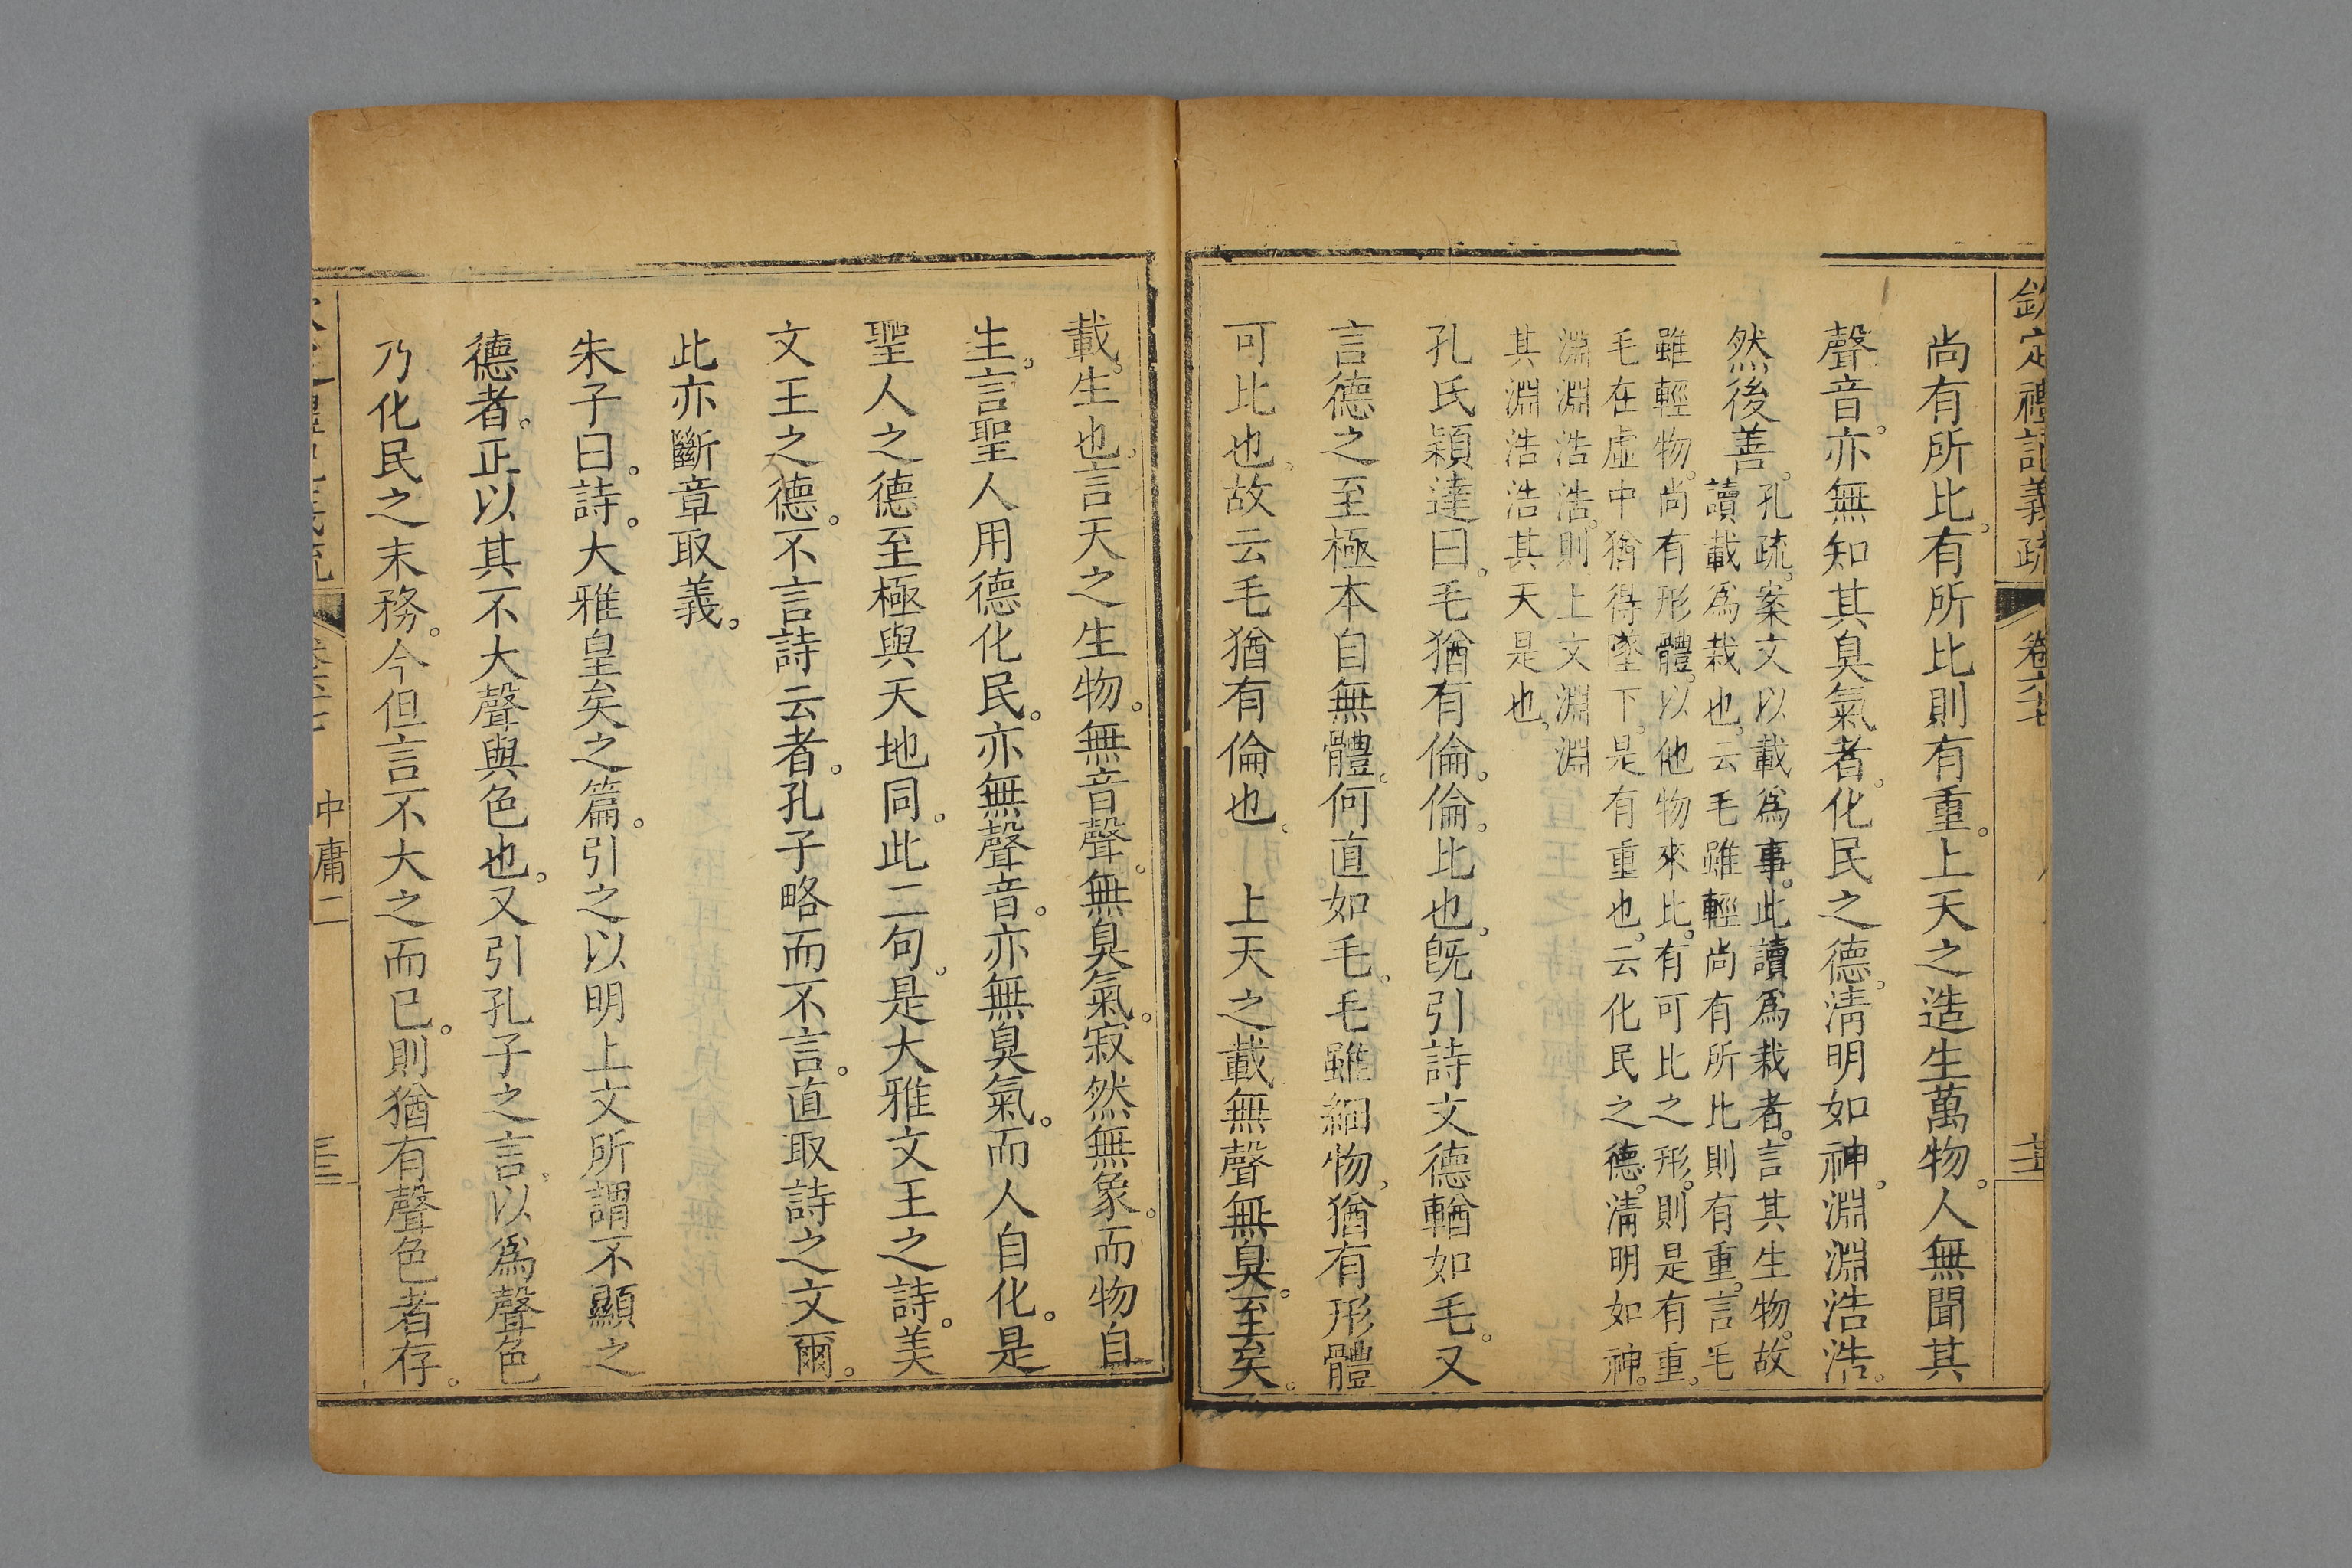 欽定禮記義疏 卷六七
尚有所比。有所比則有重。上天之造生萬物。人無聞其
聲音。亦無知其臭氣者。化民之德。清明如神。淵淵浩浩。
然後善。
孔疏。案文以載爲事。此讀爲栽者。言其生物。故
讀載爲栽也。云毛雖輕尚有所比則有重。言毛
雖輕物。尚有形體。以他物來比。有可比之形。則是有重。
毛在虛中猶得墜下。是有重也。云化民之德。清明如神。
淵淵浩浩。則上文淵淵
其淵浩浩其天是也。
孔氏穎達曰。毛猶有倫。倫。比也。旣引詩文德輶如毛。又
言德之至極本自無體。何直如毛。毛雖細物。猶有形體
可比也。故云毛猶有倫也。 上天之載無聲無臭。至矣。
載。生也。言天之生物。無音聲。無臭氣。寂然無象。而物自
生。言聖人用德化民。亦無聲音。亦無臭氣。而人自化。是
聖人之德至極與天地同。此二句。是大雅文王之詩。美
文王之德。不言詩云者。孔子略而不言。直取詩之文爾。
此亦斷章取義。
朱子曰。詩。大雅皇矣之篇。引之以明上文所謂不顯之
德者。正以其不大聲與色也。又引孔子之言。以爲聲色
乃化民之末務。今但言不大之而已。則猶有聲色者存。
中庸二